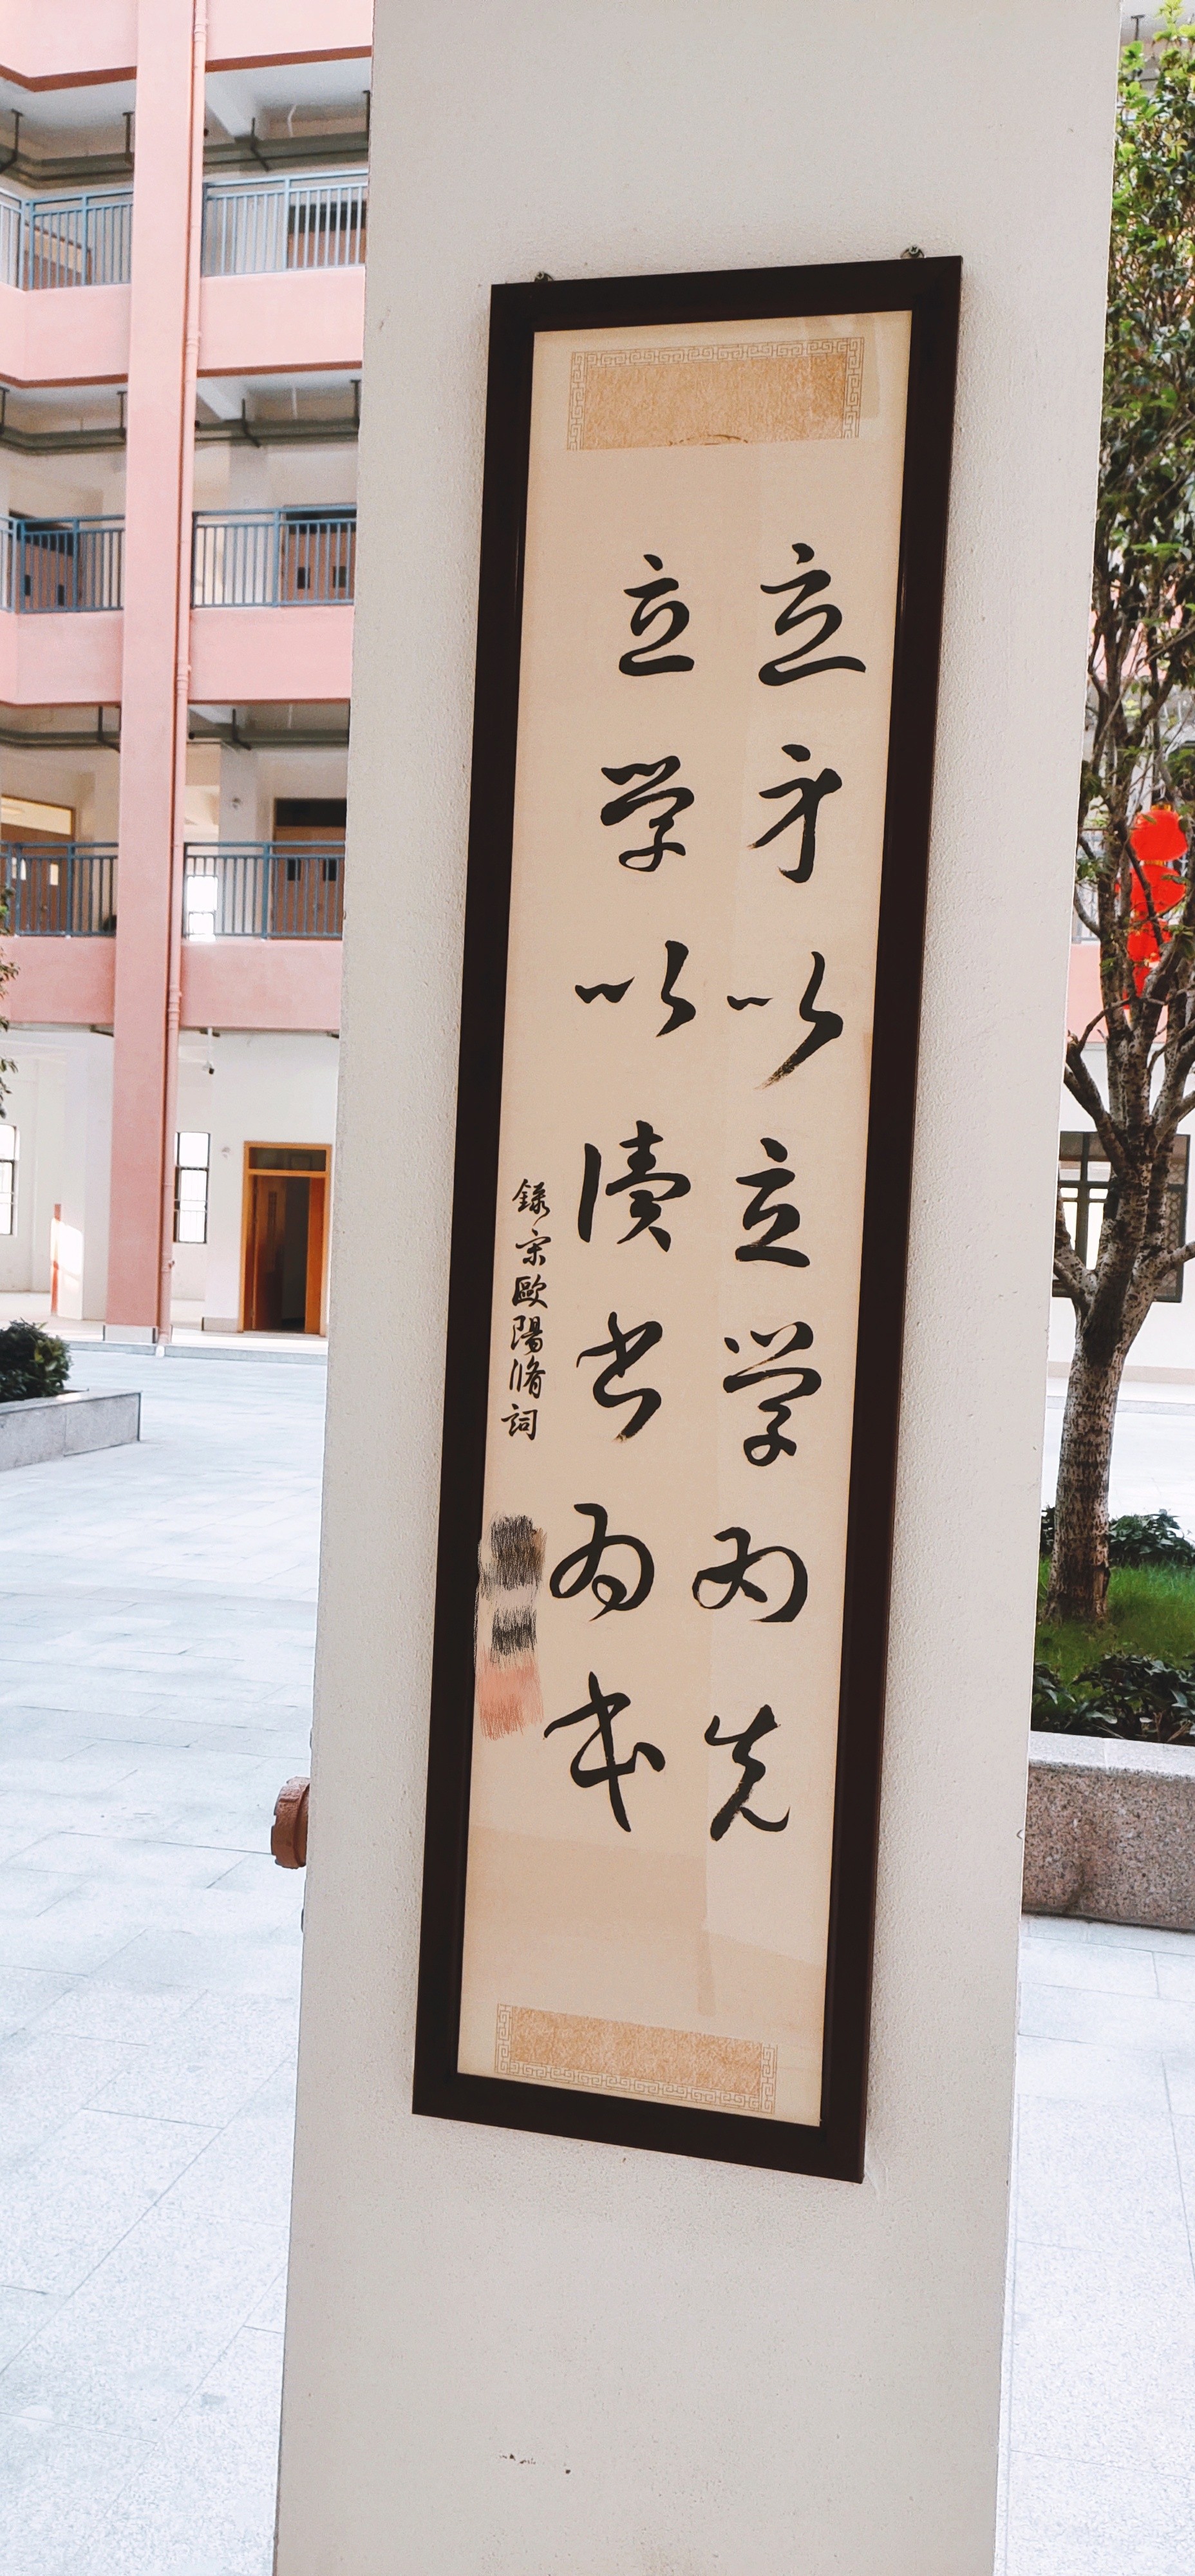 立身以立学为先
立学以读书为本
錄宋歐陽脩詞